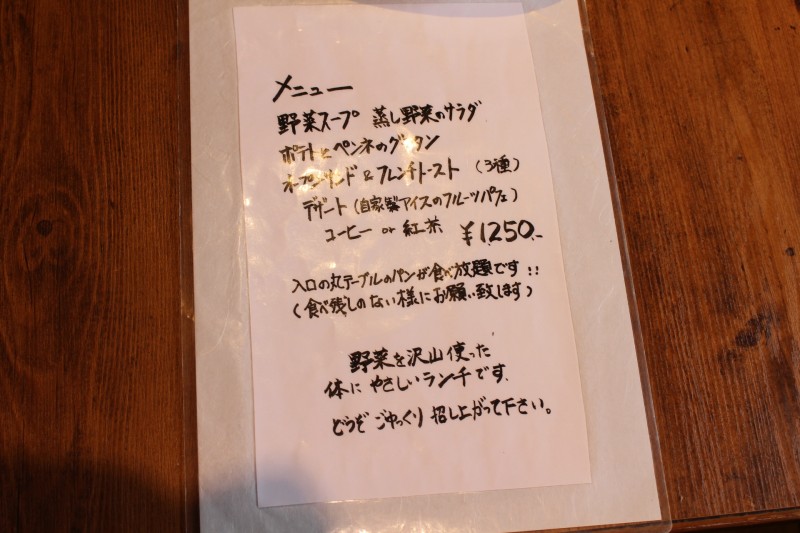 メニュー
野菜スープ 蒸し野菜のサラダ
ポテトとペンネのグラタン
オープンサンド & フレンチトースト (3種)
デザート (自家製アイスのフルーツパフェ)
コーヒー or 紅茶 ¥1250.-
入口の丸テーブルのパンが食べ放題です!!
(食べ残しのない様にお願い致します)
野菜を沢山使った
体に やさしいランチです.
どうぞ ごゆっくり 招し上がって下さい。